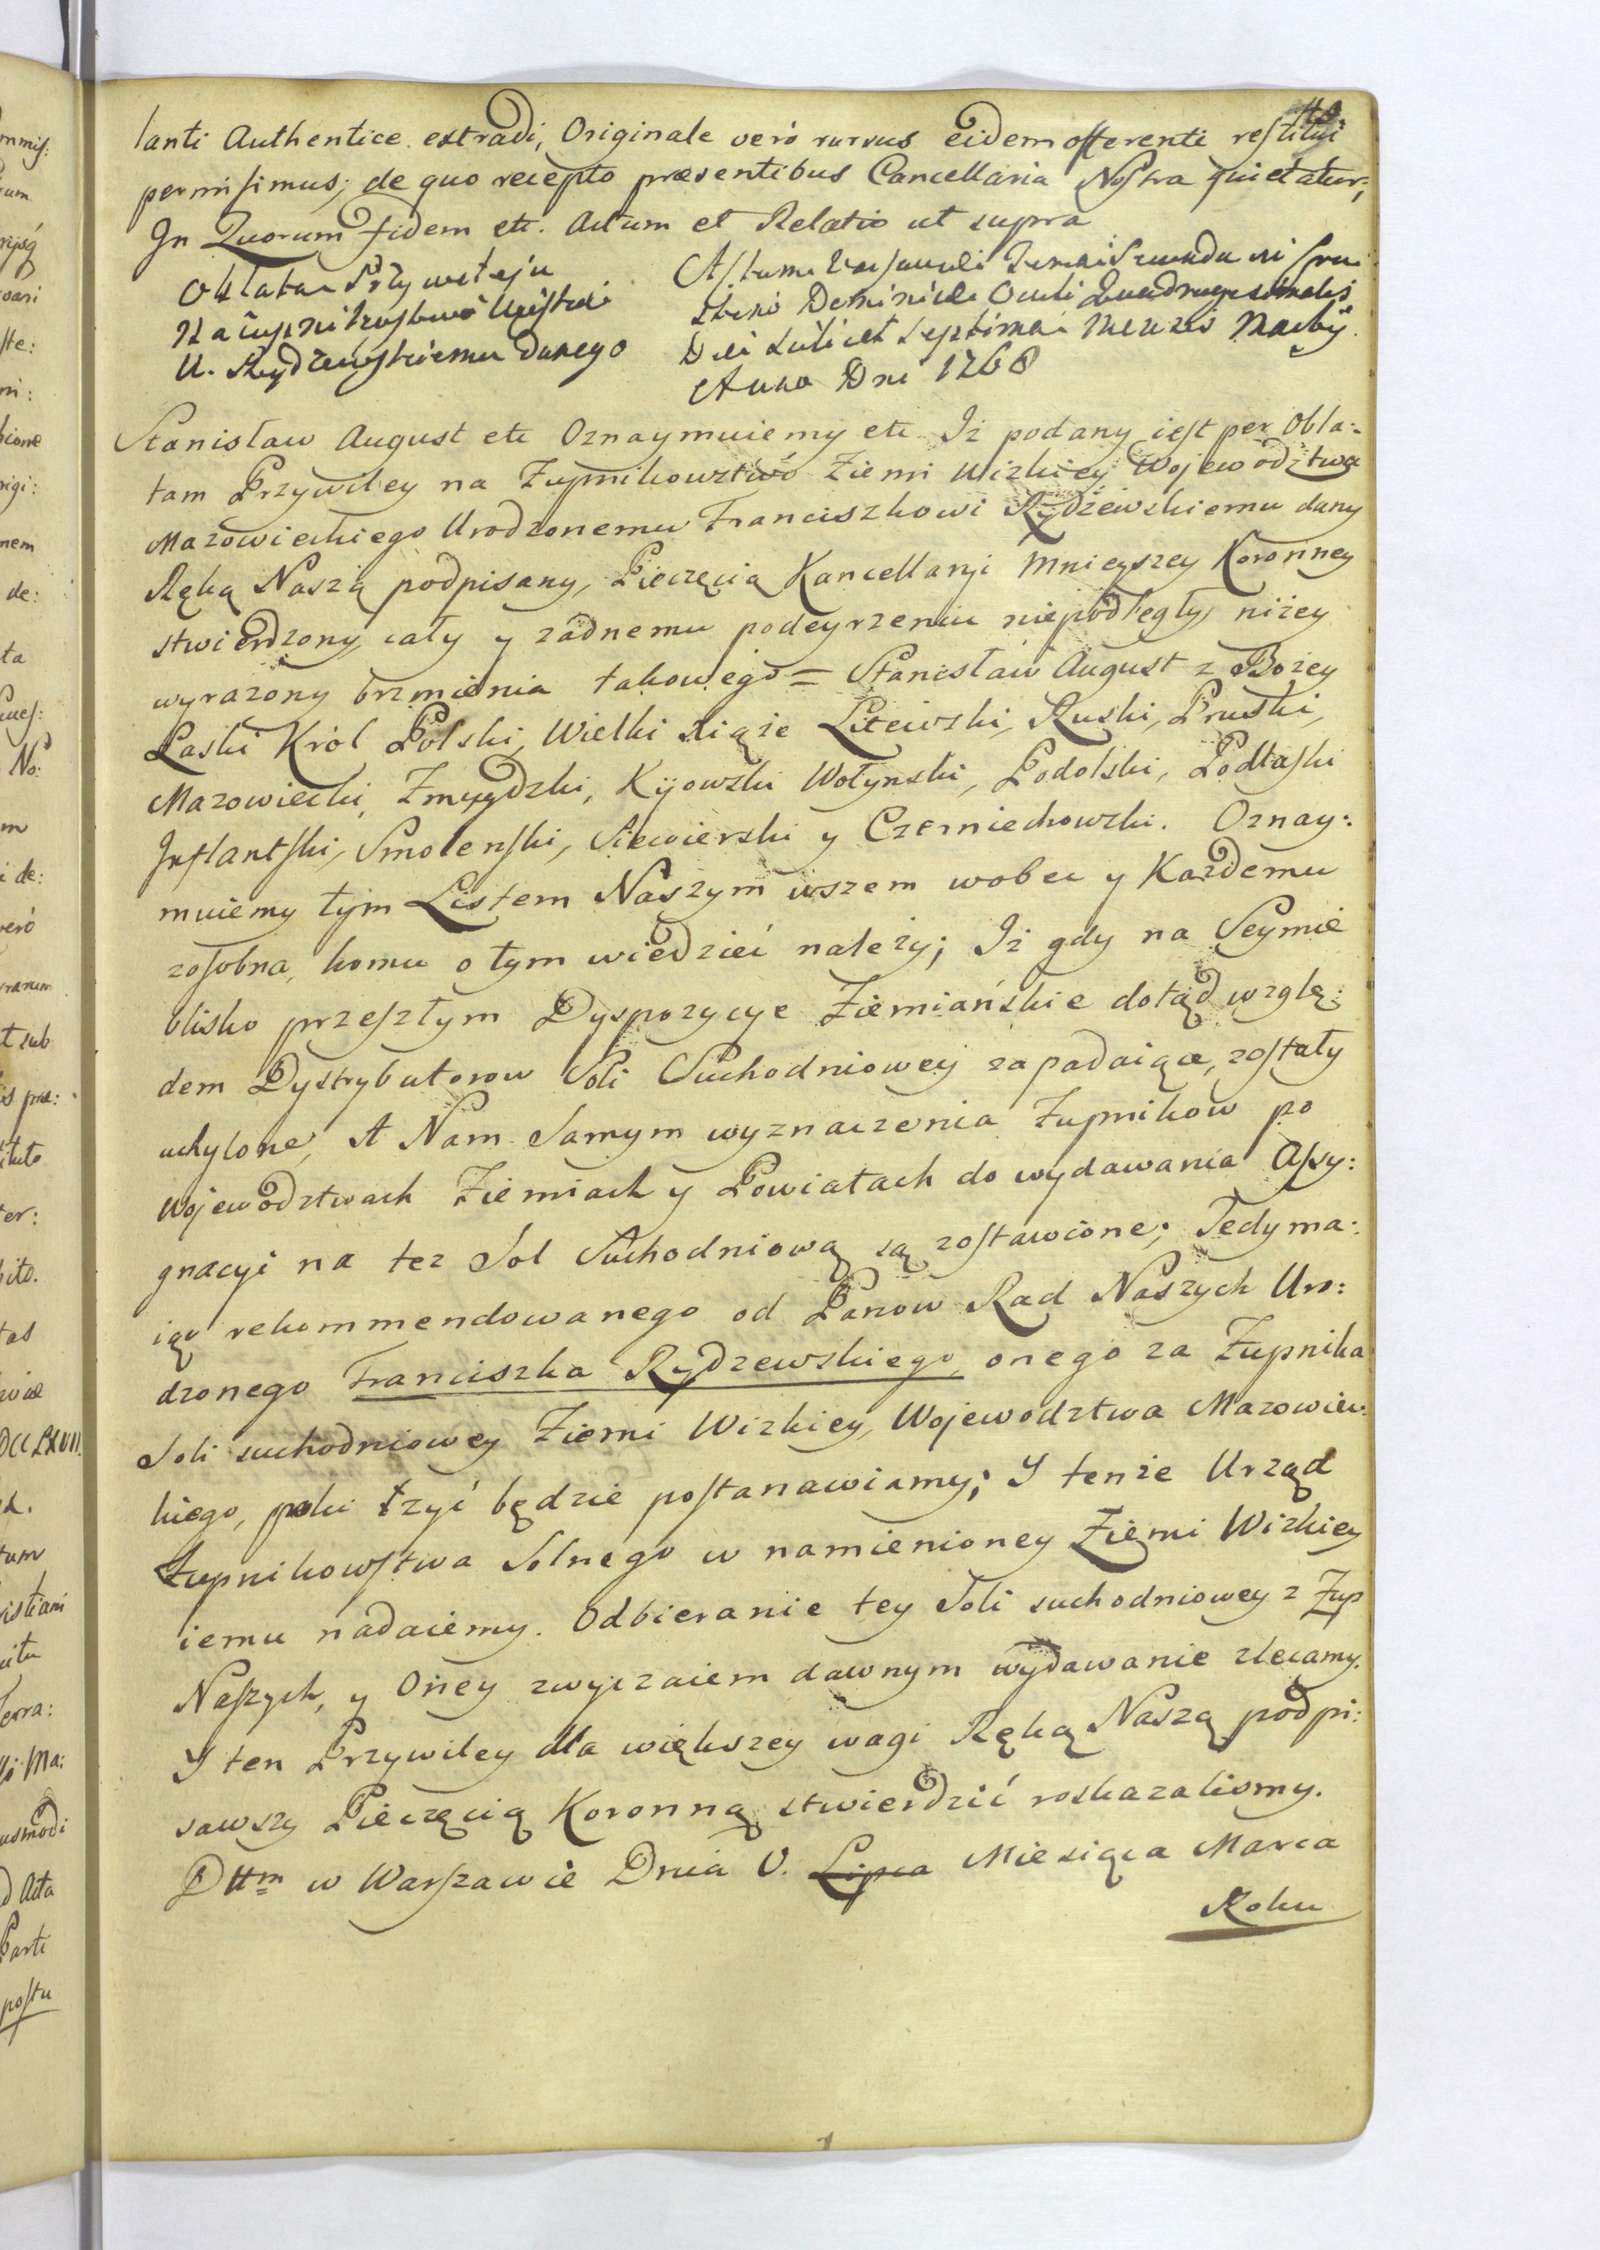 lanti Authentice extradi, Originale veró rursus eidem offerenti restitui
permisimus; de quo recepto præsentibus Cancellaria Nostra quietatur;
In Quorum fidem etc. Actum et Relatio ut supra
Oblata Przywileju
Na Żupnikowstwo Wizkie
U. Rydzewskiemu danego
Actum Varsaviæ Feria Secunda
Dominicæ Oculi Quadragesimalis
Die scilicet Septima Mensis Martij
Anno Dni 1768
Stanisław August etc Oznaymuiemy etc Iż podany iest per Obla:
tam Przywiley na Żupnikowztwo Ziemi Wizkiey Wojewodztwa
Mazowieckiego Urodzonemu Franciszkowi Rydżewskiemu dany
Ręką Naszą podpisany, Pieczęcią Kancellaryi Mnieyszey Koronney
stwierdzony, cały y żadnemu podeyrzeniu niepodległy, niżey
wyrażony brzmienia takowego = Stanisław August z Bożey
Łaski Król Polski, Wielki Xiąże Litewski, Ruski, Pruski,
Mazowiecki, Żmuydzki, Kijowski Wołynski, Podolski, Podlaski
Inflantski, Smolenski, Siewierski y Czerniechowski. Oznay:
muiemy tym Listem Naszym wszem wobec y Każdemu
zosobna, komu o tym wiedzieć należy; Iż gdy na Seymie
blisko przeszłym Dyspozycye Ziemiańskie dotąd wzglę:
dem Dystrybutorow Soli Suchodniowey zapadaiące, zostały
uchylone, A Nam Samym wyznaczenia Żupnikow po
Wojewodztwach Ziemiach y Powiatach do wydawania Assy:
gnacyi na tez Sol Suchodniową są zostawione; Tedy ma:
iąc rekommendowanego od Panow Rad Naszych Uro:
dzonego Franciszka Rydzewskiego, onego za Żupnika
Soli suchodniowey Ziemi Wizkiey, Wojewodztwa Mazowiec:
kiego, poki żyć będzie postanawiamy; Y tenże Urząd
Żupnikowstwa Solnego w namienioney Ziemi Wizkiey
iemu nadaiemy. Odbieranie tey Soli suchodniowey z Żup
Naszych, y Oney zwyczaiem dawnym wydawanie zlecamy.
Y ten Przywiley dla większey wagi Ręką Naszą podpi:
sawszy Pieczęcią Koronną stwierdzić roskazalismy.
Dttm w Warszawie Dnia V. Lipca Miesiąca Marca
Roku